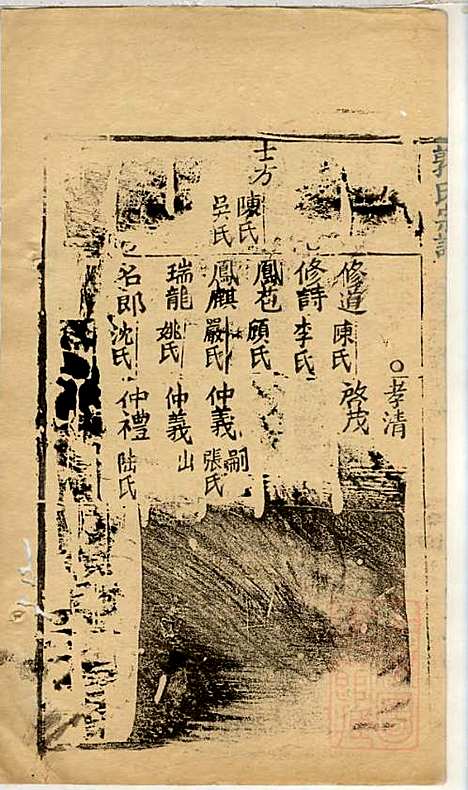 郭氏宗譜
孝清
修道 陳氏 啓茂
修詩 李氏
士方 陳氏 吳氏
鳳苞 顧氏
鳳麒 嚴氏 仲義 嗣 張氏
瑞龍 姚氏 仲義 出
名郎 沈氏 仲禮 陆氏